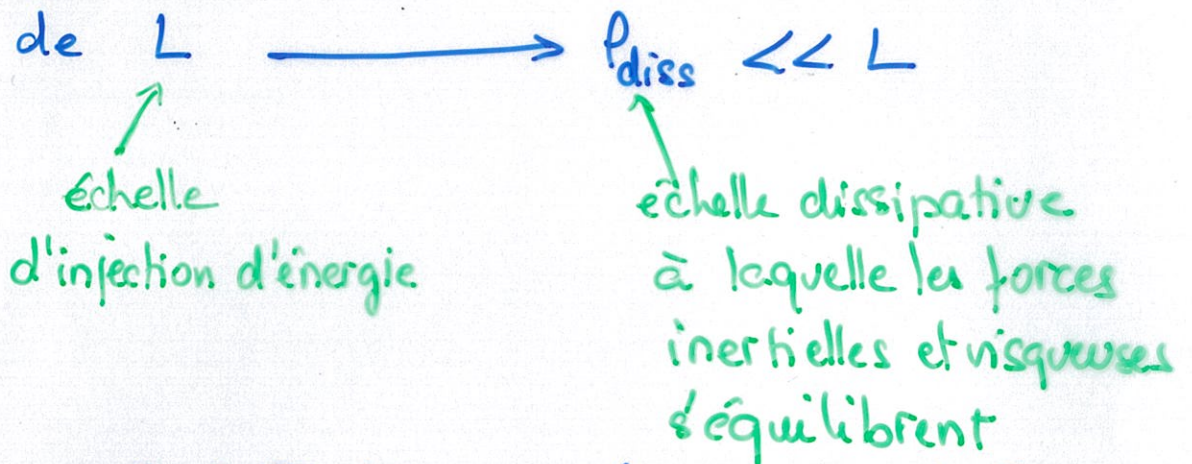 de L → ℓdiss << L
échelle
d'injection d'énergie
échelle dissipative
à laquelle les forces
inertielles et visqueuses
s'équilibrent